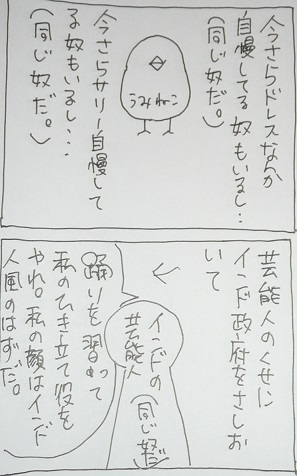 今さらドレスなんか
自慢してる奴もいるし…
(同じ奴だ。)
うみねこ
今さらサリー自慢して
る奴もいるし…
(同じ奴だ。)
芸能人のくせに
インド政府をさしお
いて
インドの
芸能人
(同じ奴だ)
踊りを習って
私のひき立て役を
やれ。私の顔はインド
人風のはずだ。